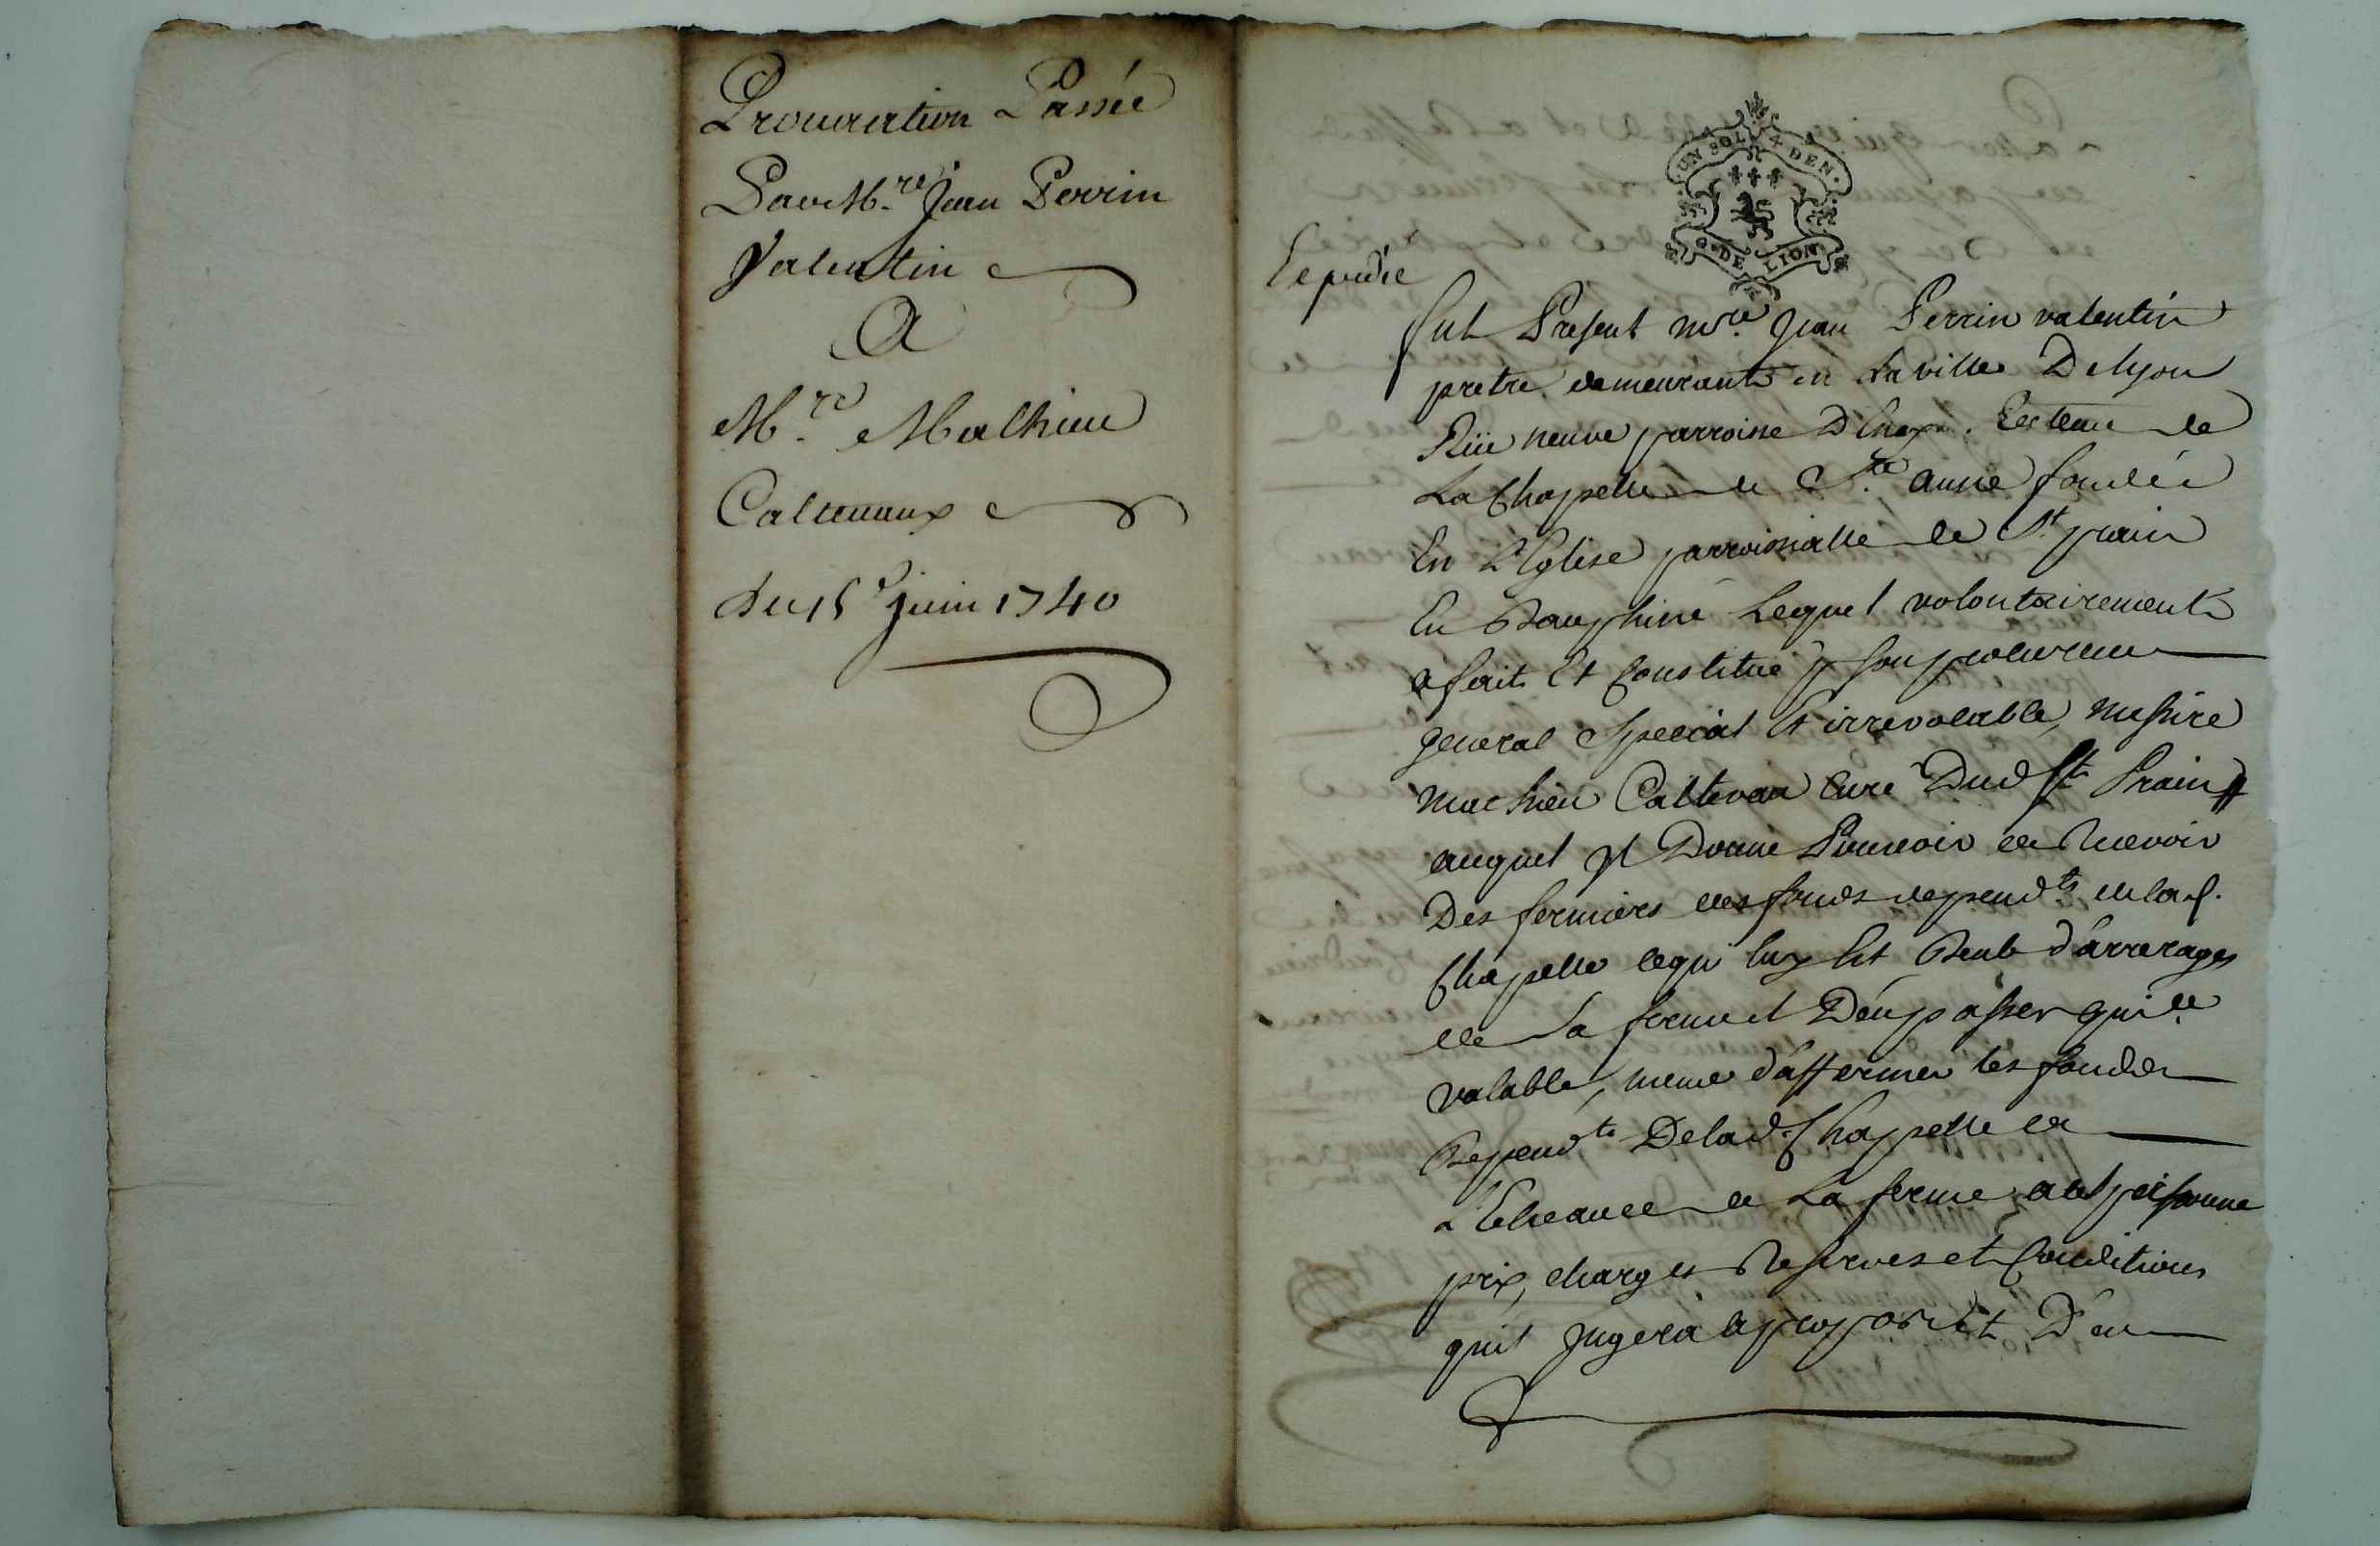 Procuration Passée
Par M.re Jean Perrin
Valentin
A
M.re Mathieu
Caltenaux
du 15e juin 1740
UN SOL 4 DEN.
G. DE LION
Expedié
fut Present mre. Jean Perrin valentin
pretre demeurant en la ville De lyon
Rüe neuve parroisse Recteur de
La Chapelle de Ste. anne fondée
En L'Eglise parroissialle de St. prain
En Dauphiné Lequel volontairement
a fait Et Constitué p son procureur
general Special Et irrevocable, messire
mathieu Caltevau Curé Dud St. Prain
auquel Jl Donne Pouvoir de Recevoir
Des fermiers des fonds dependts. de lad.
Chapelle cequi luy Est Deub d'arrerages
de La ferme et D'en passer quice.
valable, meme d'affermer les fonds
Dependts. De lad. Chapelle a
L'Echeance de La ferme a tel personne
prix, charges Reserves et Conditions
quil Jugera a propos et D'en